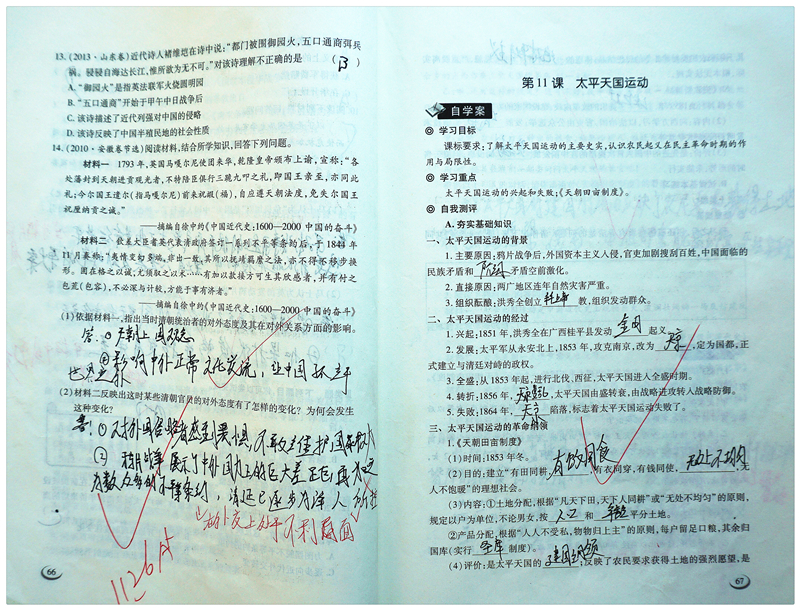 13.(2013·山东卷)近代诗人褚维垲在诗中说:“都门被围御园火,五口通商弭兵
祸。骎骎自海达长江,惟所欲为无不可。”对该诗理解不正确的是 ( B )
A.“御园火”是指英法联军火烧圆明园
B.“五口通商”开始于甲午中日战争后
C.该诗描述了近代列强对中国的侵略
D.该诗反映了中国半殖民地的社会性质
14.(2010·安徽卷节选)阅读材料,结合所学知识,回答下列问题。
材料一 1793年,英国马嘎尔尼使团来华,乾隆皇帝颁布上谕,宣称:“各
处藩封到天朝进贡观光者,不特陪臣俱行三跪九叩之礼,即国王亲至,亦同此
礼;今尔国王遣尔(指马嘎尔尼)前来祝嘏(福),自应遵天朝法度,免失尔国王
祝厘纳贡之诚。”
——摘编自徐中约《中国近代史:1600—2000 中国的奋斗》
材料二 钦差大臣耆英代表清政府签订一系列不平等条约后,于1844年
11月奏称:“夷情变幻多端,非出一致,其所以抚绥羁縻之法,亦不得不移步换
形。固在格之以诚,尤须驭之以术……有加以款接方可生其欣感者,并有付之
包荒(包容),不必深与计较,方能于事有济者。”
——摘编自徐中约《中国近代史:1600—2000 中国的奋斗》
(1)依据材料一,指出当时清朝统治者的对外态度及其在对外关系方面的影响。
答:①天朝上国观念
②影响中外正常文化交流,让中国孤立于
世界之外
(2)材料二反映出这时某些清朝官员的对外态度有了怎样的变化?为何会发生
这种变化?
答:①对外国侵略者感到畏惧,不敢去维护国家
② 鸦片战争展示了中外国力上的巨大差距
为数众多的不平等条约,清廷已逐步为洋人
在外交上处于不利局面
1126片
66
第11课 太平天国运动
自学案
学习目标
课标要求:了解太平天国运动的主要史实,认识农民起义在民主革命时期的作
用与局限性。
学习重点
太平天国运动的兴起和失败;《天朝田亩制度》。
自我测评
A.夯实基础知识
一、太平天国运动的背景
1.主要原因:鸦片战争后,外国资本主义入侵,官吏加剧搜刮百姓,中国面临的
民族矛盾和 阶级 矛盾空前激化。
2.直接原因:两广地区连年自然灾害严重。
3.组织酝酿:洪秀全创立 拜上帝 教,组织发动群众。
二、太平天国运动的经过
1.兴起:1851年,洪秀全在广西桂平县发动 金田 起义。
2.发展:太平军从永安北上,1853年,攻克南京,改为 天京 ,定为国都,正
式建立与清廷对峙的政权。
3.全盛:从1853年起,进行北伐、西征,太平天国进入全盛时期。
4.转折:1856年, 天京变乱 太平天国由盛转衰,由战略进攻转入战略防御。
5.失败:1864年, 天京 陷落,标志着太平天国运动失败了。
三、太平天国运动的革命纲领
1.《天朝田亩制度》
(1)时间:1853年冬。
(2)目的:建立“有田同耕, 有饭同食 ,有衣同穿,有钱同使, 无处不均匀 ,无
人不饱暖”的理想社会。
(3)内容:①土地分配,根据“凡天下田,天下人同耕”或“无处不均匀”的原则,
规定以户为单位,不论男女,按 人口 和 年龄 平分土地。
②产品分配,根据“人人不受私,物物归上主”的原则,每户留足口粮,其余归
国库(实行 圣库 制度)。
(4)评价:是太平天国的 建国纲领 ;反映了农民要求获得土地的强烈愿望,是
67